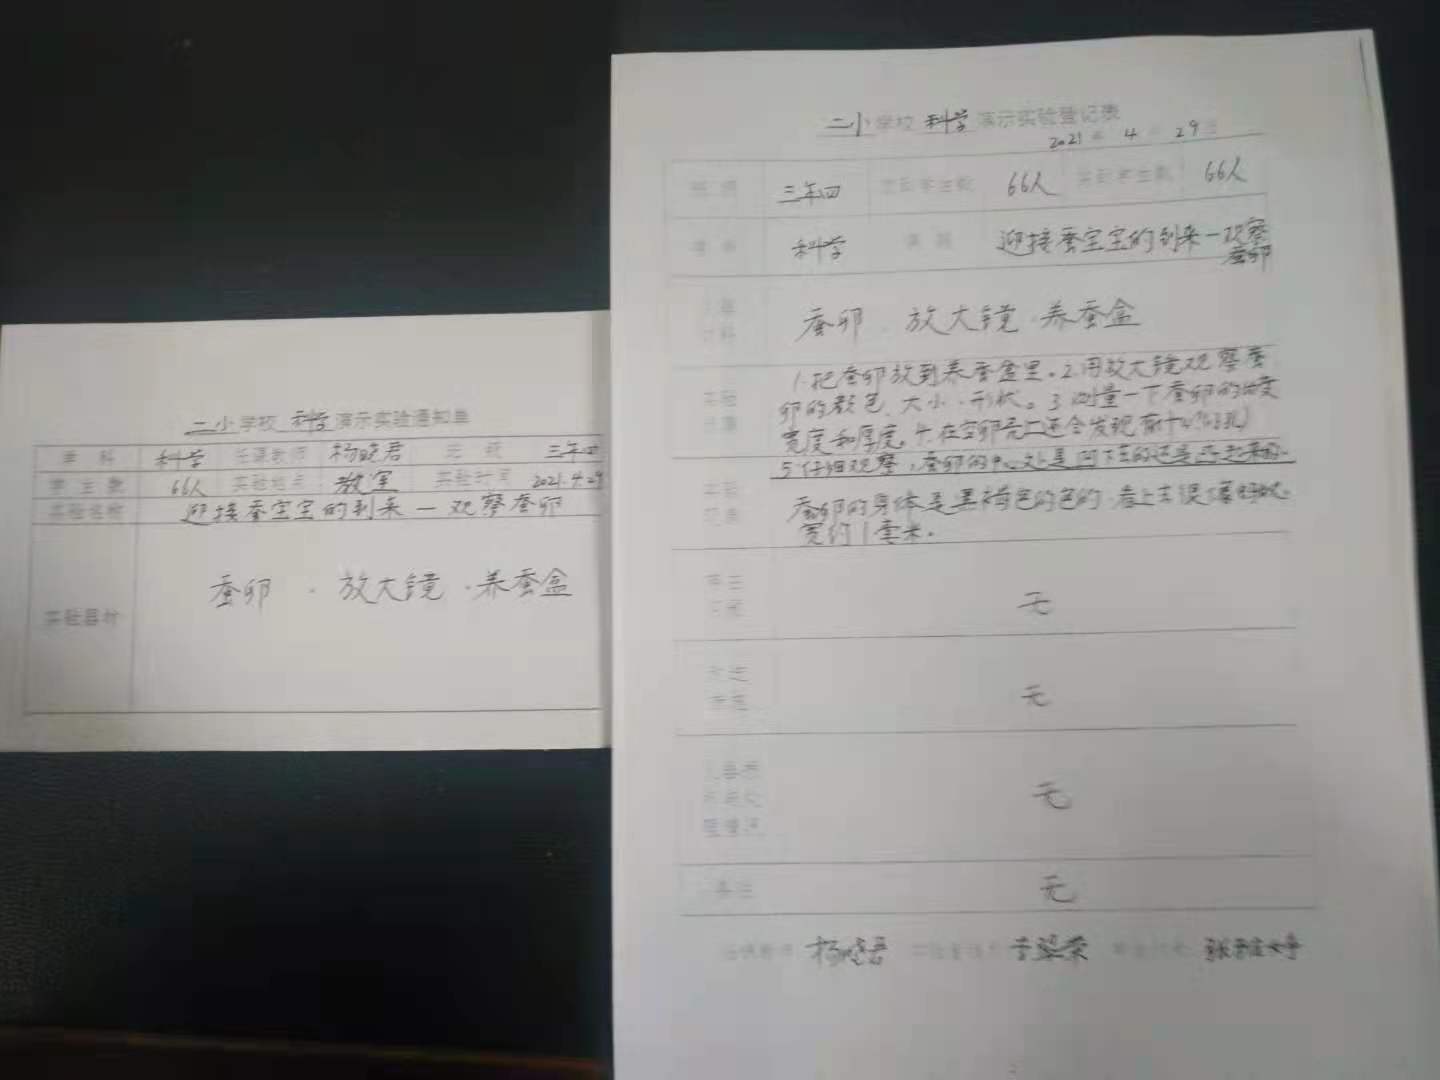 二小学校 科学 演示实验通知单
学科 科学 任课教师 杨晓君 班级 三年四
学生数 66人 实验地点 教室 实验时间 2021.4.29
实验名称 迎接蚕宝宝的到来一观察蚕卵
实验器材 蚕卵 . 放大镜 . 养蚕盒
二小学校 科学 演示实验登记表
2021年 4月 29日
班级 三年四 应到学生数 66人 实到学生数 66人
科学 课题 迎接蚕宝宝的到来一观察
蚕卵
蚕卵 . 放大镜 . 养蚕盒
实验
1.把蚕卵放到养蚕盒里。2.用放大镜观察蚕
卵的颜色、大小、形状。3.测量一下蚕卵的
宽度和厚度。4.在空卵壳上还会发现有什么
5.仔细观察,蚕卵的中心处是凹下去的还是
蚕卵的身体是黑褐色的 看上去很
宽约1毫米。
无
无
无
备注 无
任课教师 杨晓君